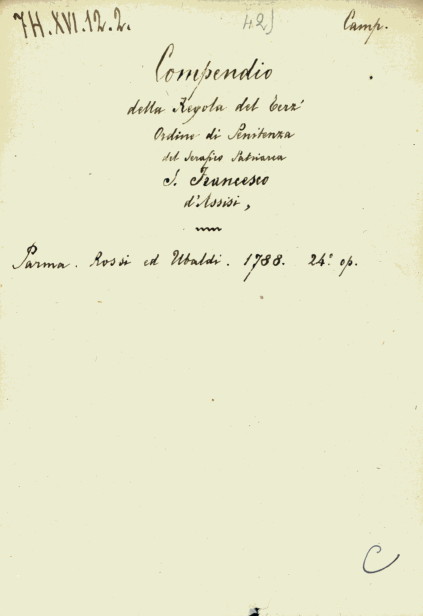 7H.XVI.12.2. 42) Camp.
Compendio
della Regola del Terz'
Ordine di Penitenza
del Serafico Patriarca
S. Francesco
d'Assisi,
Parma. Rossi ed Ubaldi. 1788. 24.° op.
C